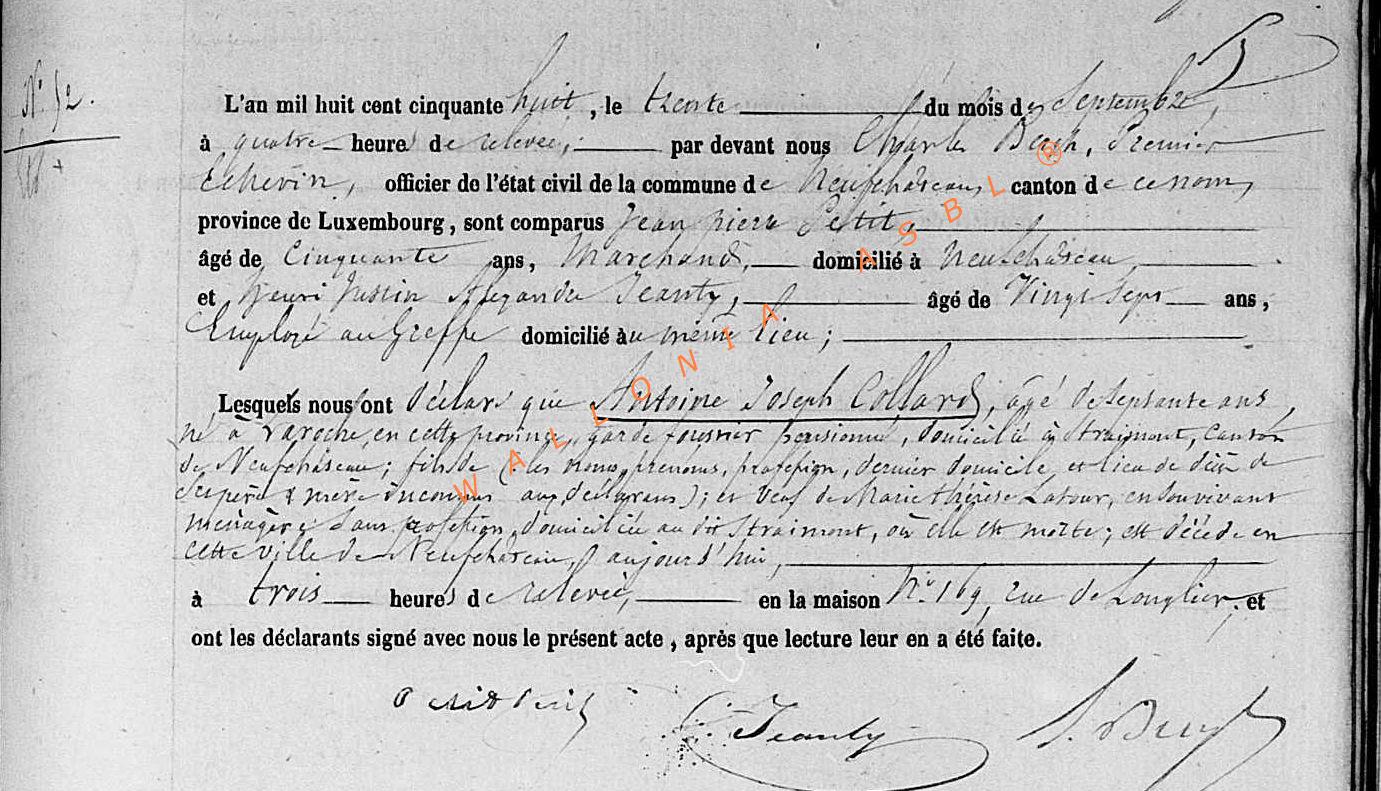 N° 52.
L'an mil huit cent cinquante huit, le trente du mois de Septembre,
à quatre heures de relevée, par devant nous Charles , Premier
Echevin, officier de l'état civil de la commune de Neufchâteau, canton de ce nom,
province de Luxembourg, sont comparus Jean pierre Petit,
âgé de Cinquante ans, Marchand, domicilié à Neufchâteau,
et henri Justin Alexandre Jeanty, âgé de Vingt Sept ans,
Employé au Greffe domicilié au même lieu;
Lesquels nous ont déclaré que Antoine Joseph Collard, âgé de Septante ans,
né à Laroche, en cette province, garde forestier pensionné, domicilié à Straimont, canton
de Neufchâteau; fils de (: les noms, prénoms, profession, dernier domicile et lieu de décès de
ses père & mère inconnus aux déclarans); et Veuf de Marie thérèse Latour, en son vivant
ménagère sans profession, domiciliée au dit Straimont, où elle est morte; est décédé en
cette ville de Neufchâteau, aujourd'hui,
à trois heures de relevée, en la maison N° 169, rue de Longlier; et
ont les déclarants signé avec nous le présent acte, après que lecture leur en a été faite.
Jeanty
WALLONIA ASBL ®